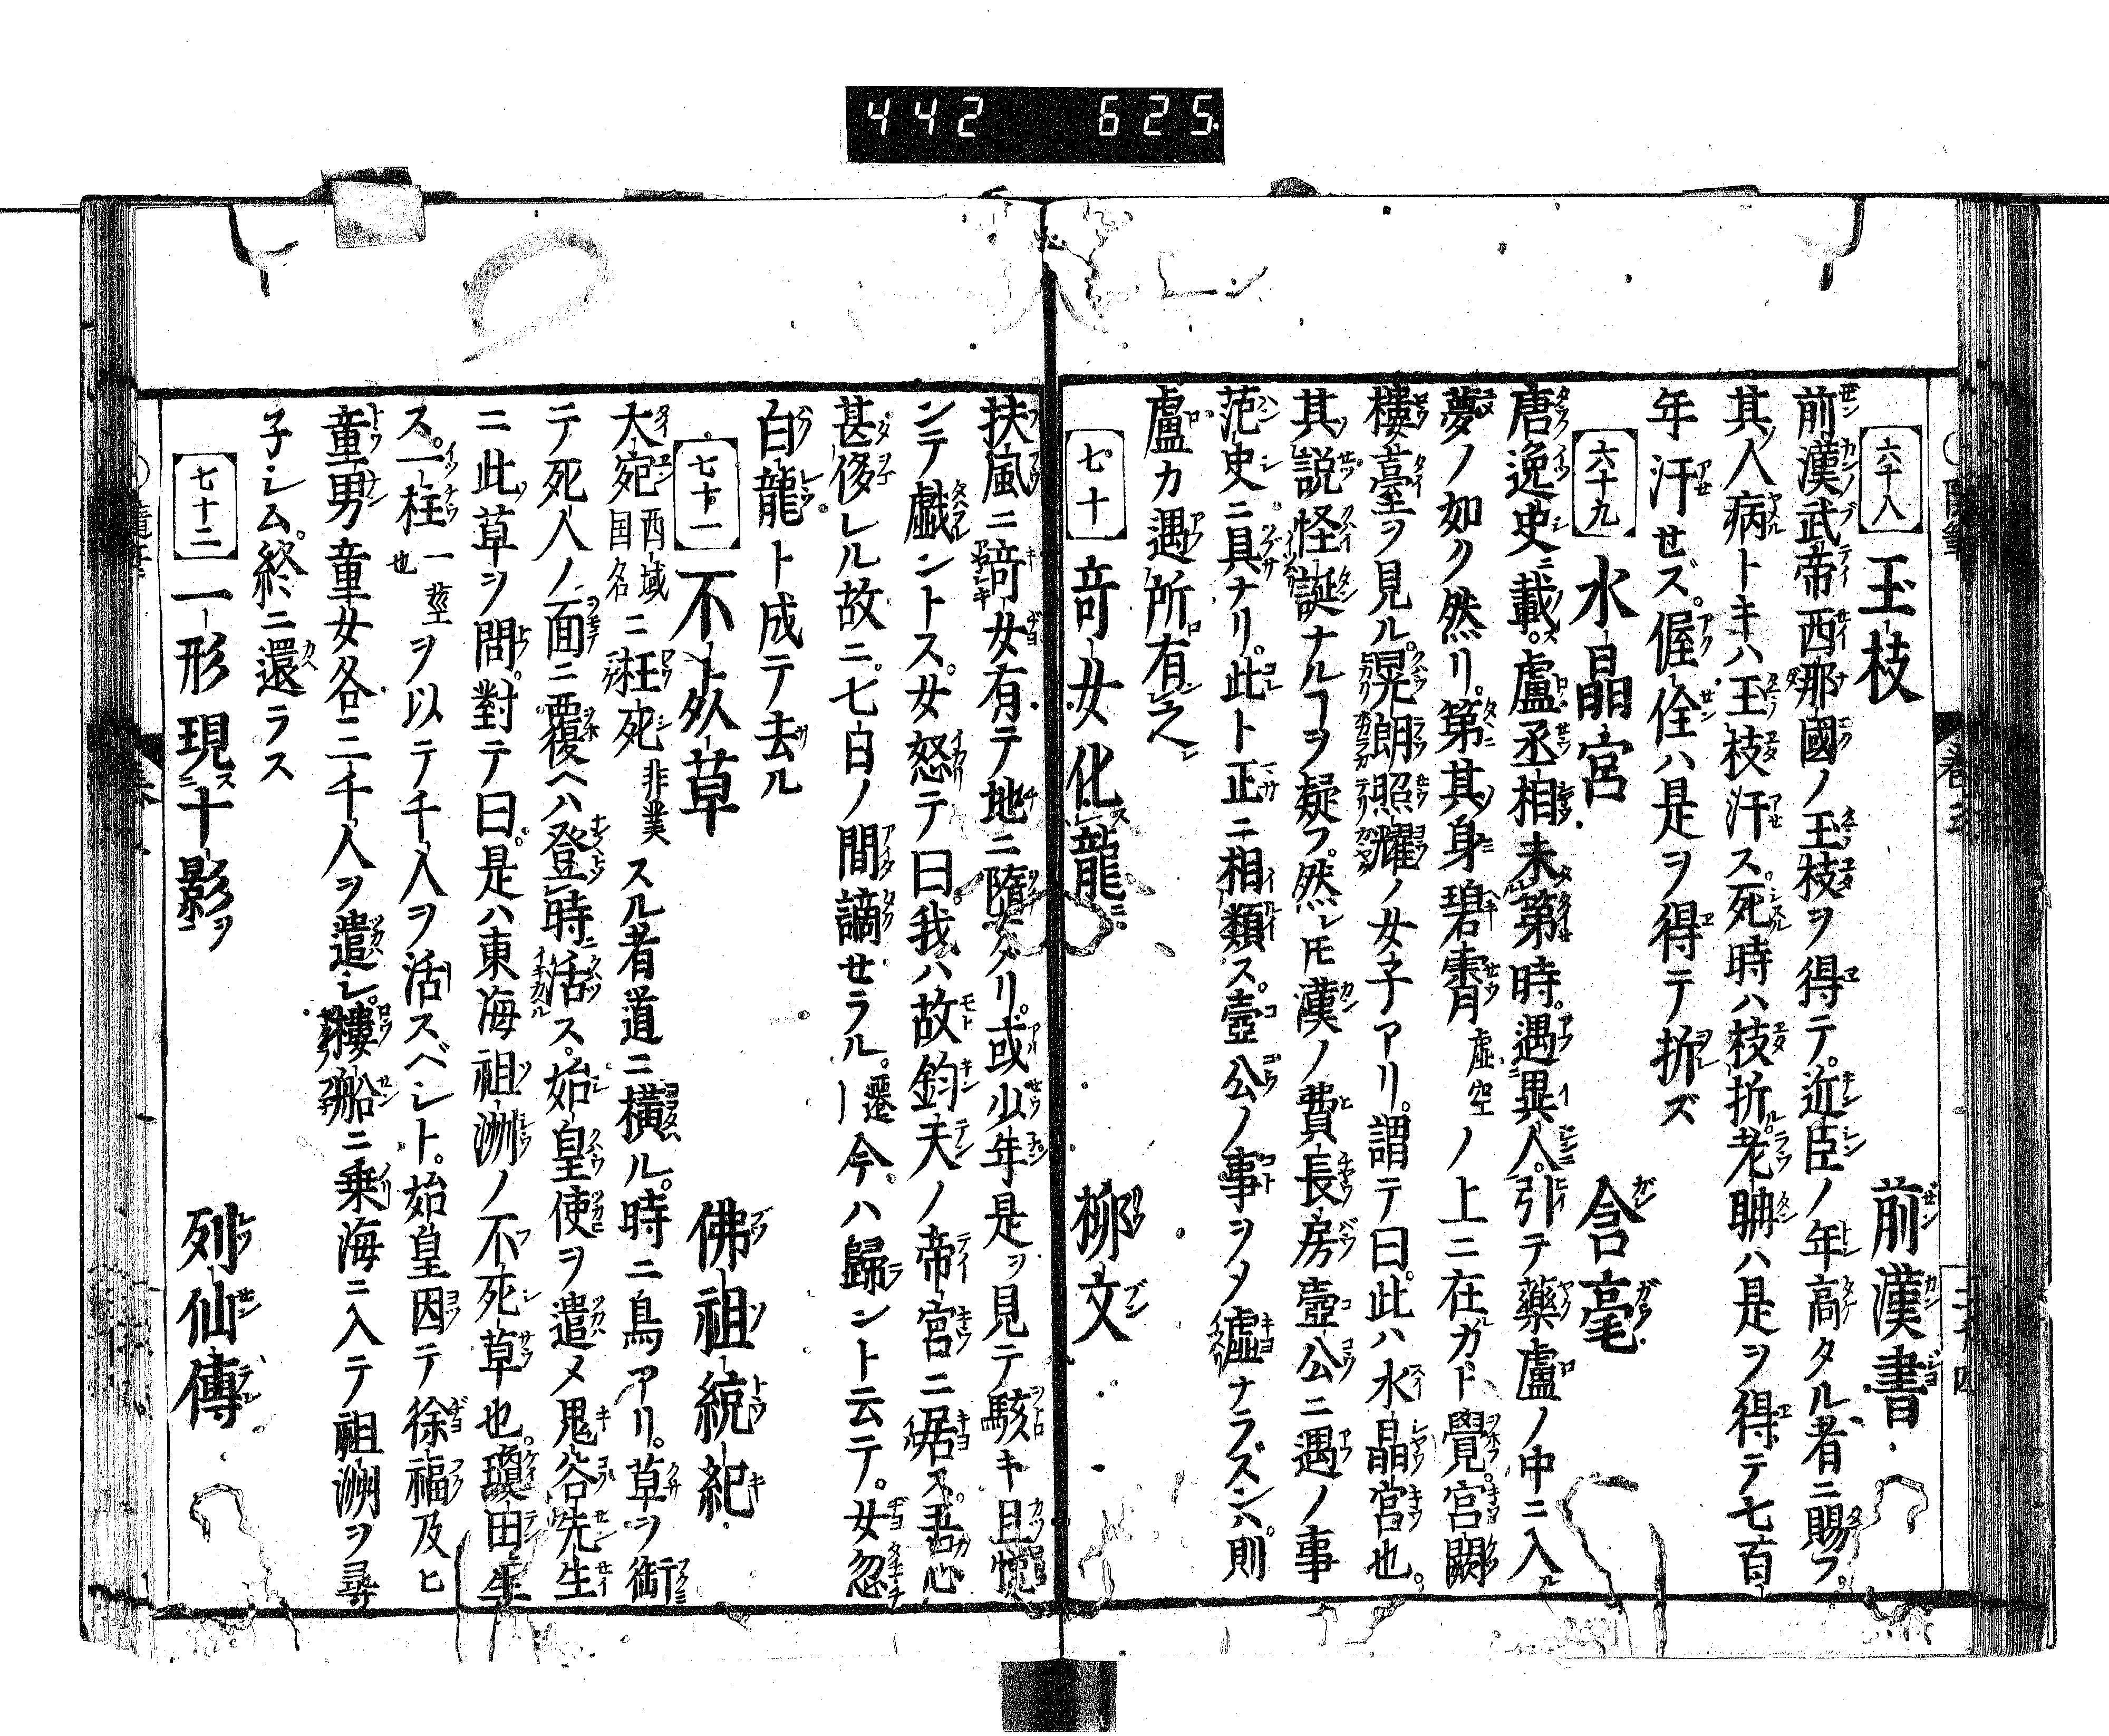 442 625
六十八 玉枝 前漢書
前漢武帝西那國ノ玉枝ヲ得テ。近臣ノ年高タル者ニ賜フ。
其人病トキハ玉枝汗ス。死時ハ枝折ル。老聃ハ是ヲ得テ七百
年汗セズ。偓佺ハ是ヲ得テ折ズ
六十九 水晶宮 含毫
唐逸史ニ載。盧丞相未第時。遇異人。引テ藥盧ノ中ニ入ル
夢ノ如ク然リ。第其身碧霄虛空ノ上ニ在カト覺フ。宮闕
樓臺ヲ見ル。晃朗照耀ノ女子アリ。謂テ曰。此ハ水晶宮也。
其説怪誕ナルヿヲ疑フ。然レモ漢ノ費長房壺公ニ遇ノ事
范史ニ具ナリ。此ト正ニ相類ス。壺公ノ事ヲ〆虛ナラズンハ。則
盧カ遇所有之ン
七十 竒女化龍 柳文
扶風ニ竒女有テ地ニ墮タリ。或少年是ヲ見テ駭キ且
ンテ戯ントス。女怒テ曰。我ハ故鈞天ノ帝宮ニ居ス。吾心
甚侈レル故ニ。七白ノ間謫セラル。遷今ハ歸ント云テ。女忽
白龍ト成テ去ル
七十一 不死草 佛祖統紀
大宛西域国名ニ枉死非業スル者道ニ橫ル。時ニ鳥アリ。草ヲ銜
テ死人ノ面ニ覆ヘハ登時活ス。始皇使ヲ遣〆鬼谷先生
ニ此草ヲ問。對テ曰。是ハ東海祖洲ノ不死草也。瓊田ニ生
ス。一株一莖也ヲ以テ千人ヲ活スベシト。始皇因テ徐福及ヒ
童男童女各三千人ヲ遣シ。樓船ニ乗海ニ入テ祖洲ヲ尋
子シム。終ニ還ラス
七十二 一形現十影ヲ 列仙傳